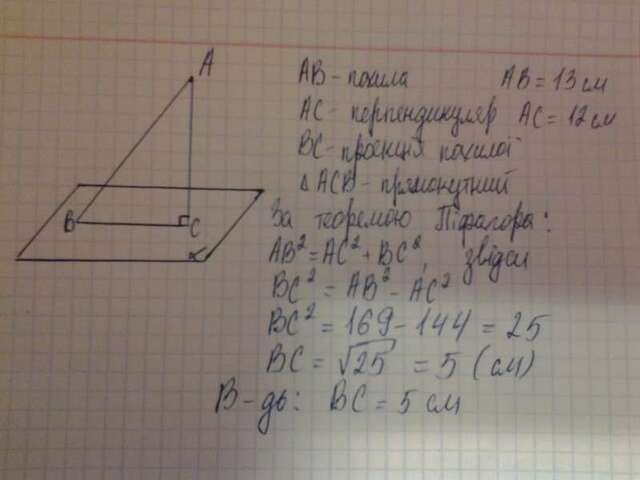 A
B
C
α
AB - похила AB = 13 см
AC - перпендикуляр AC = 12 см
BC - проєкція похилої
Δ ACB - прямокутний
За теоремою Піфагора:
AB² = AC² + BC², звідси
BC² = AB² - AC²
BC² = 169 - 144 = 25
BC = √25 = 5 (см)
В-дь: BC = 5 см